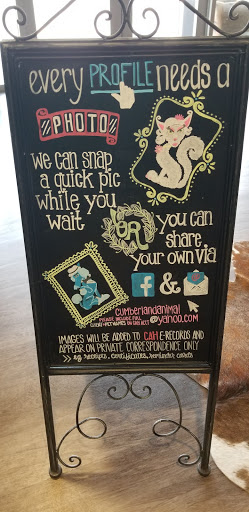 every PROFILE needs a
PHOTO
we can snap
a quick pic
while you
wait
OR
you can
share
your own via
f &
cumberlandanimal
@yahoo.com
PLEASE INCLUDE FULL
IMAGES WILL BE ADDED TO CAH E-RECORDS AND
APPEAR ON PRIVATE CORRESPONDENCE ONLY
>> eg receipts, certificates, reminder cards